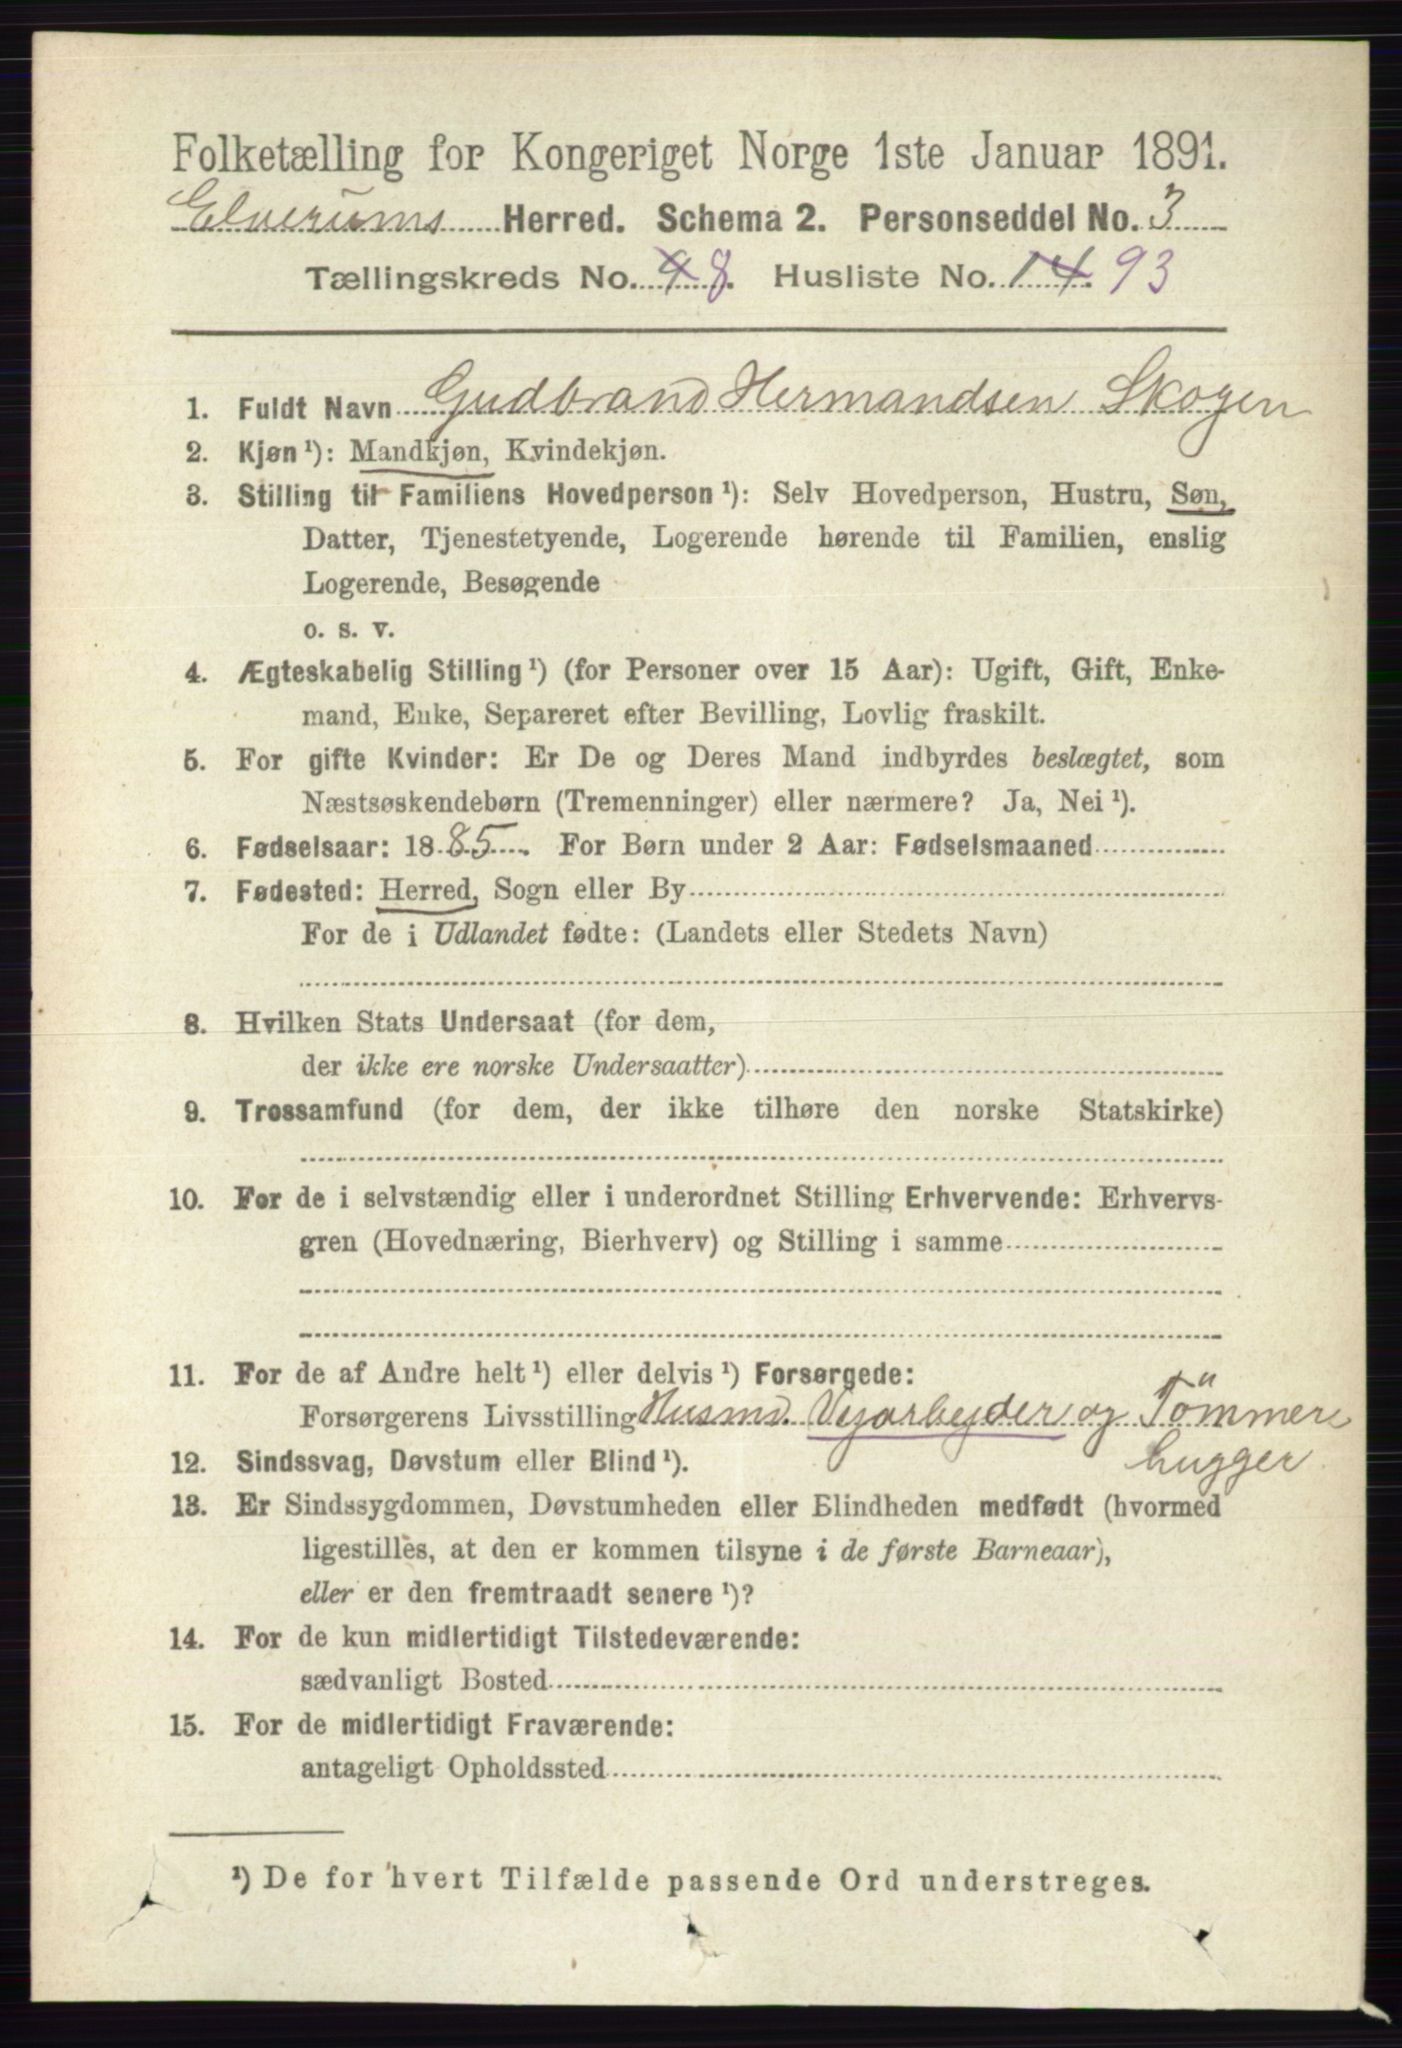 Folketælling for Kongeriget Norge 1ste Januar 1891.
Elverums Herred. Schema 2. Personseddel No. 3
Tællingskreds No. 9 8. Husliste No. 14. 93
1. Fuldt Navn Gudbrand Hermandsen Skogen
2. Kjøn¹): Mandkjøn, Kvindekjøn.
3. Stilling til Familiens Hovedperson¹): Selv Hovedperson, Hustru, Søn,
Datter, Tjenestetyende, Logerende hørende til Familien, enslig
Logerende, Besøgende
o. s. v.
4. Ægteskabelig Stilling¹) (for Personer over 15 Aar): Ugift, Gift, Enke-
mand, Enke, Separeret efter Bevilling, Lovlig fraskilt.
5. For gifte Kvinder: Er De og Deres Mand indbyrdes beslægtet, som
Næstsøskendebørn (Tremenninger) eller nærmere? Ja, Nei¹).
6. Fødselsaar: 1885. For Børn under 2 Aar: Fødselsmaaned
7. Fødested: Herred, Sogn eller By
For de i Udlandet fødte: (Landets eller Stedets Navn)
8. Hvilken Stats Undersaat (for dem,
der ikke ere norske Undersaatter)
9. Trossamfund (for dem, der ikke tilhøre den norske Statskirke)
10. For de i selvstændig eller i underordnet Stilling Erhvervende: Erhvervs-
gren (Hovednæring, Bierhverv) og Stilling i samme
11. For de af Andre helt¹) eller delvis¹) Forsørgede:
Forsørgerens Livsstilling Husmd. Vejarbejder og Tömmer
hugger
12. Sindssvag, Døvstum eller Blind¹).
13. Er Sindssygdommen, Døvstumheden eller Blindheden medfødt (hvormed
ligestilles, at den er kommen tilsyne i de første Barneaar),
eller er den fremtraadt senere¹)?
14. For de kun midlertidigt Tilstedeværende:
sædvanligt Bosted
15. For de midlertidigt Fraværende:
antageligt Opholdssted
¹) De for hvert Tilfælde passende Ord understreges.